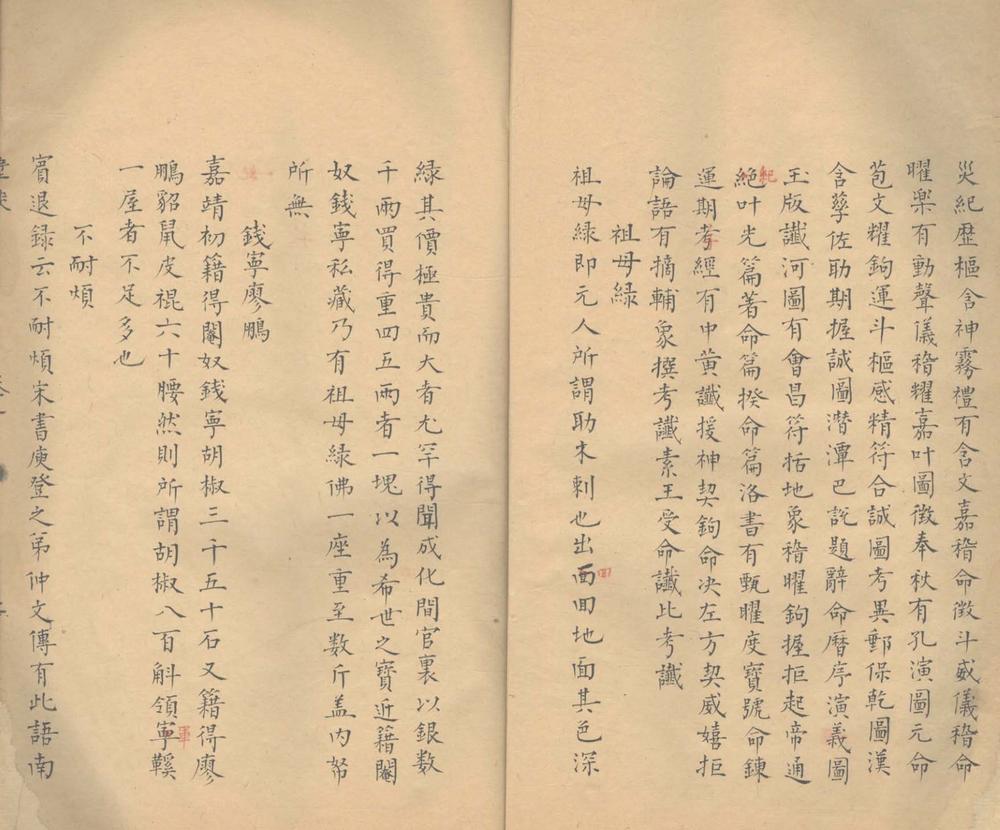 災紀歷樞含神霧禮有含文嘉稽命徴斗威儀稽命
曜樂有動聲儀稽耀嘉叶圖徴奉秋有孔演圖元命
苞文耀鉤運斗樞感精符合誠圖考異郵保乾圖漢
含孳佐助期握誠圖潜潭巴説題辭命曆序演義圖
玉版讖河圖有會昌符括地象稽曜鉤握拒起帝通
紀
絶叶光篇著命篇揆命篇洛書有甄曜度寶號命録
運期孝經有中黄讖援神契鉤命决左方契威嬉拒
論語有摘輔象撰考讖素王受命讖比考讖
祖母緑
祖母緑即元人所謂助木剌也出面囬地面其色深
回
緑其價極貴而大者尤罕得聞成化間官裏以銀数
千兩買得重四五兩者一塊以為希世之寶近籍閹
奴錢寧私藏乃有祖母緑佛一座重至数斤盖内帑
所無
錢寧廖鵬
嘉靖初籍得閹奴錢寧胡椒三千五十石又籍得廖
鵬貂鼠皮裩六十腰然則所謂胡椒八百斛領寧鞵
軍
一屋者不足多也
不耐煩
賓退録云不耐煩宋書庾登之弟仲文傳有此語南